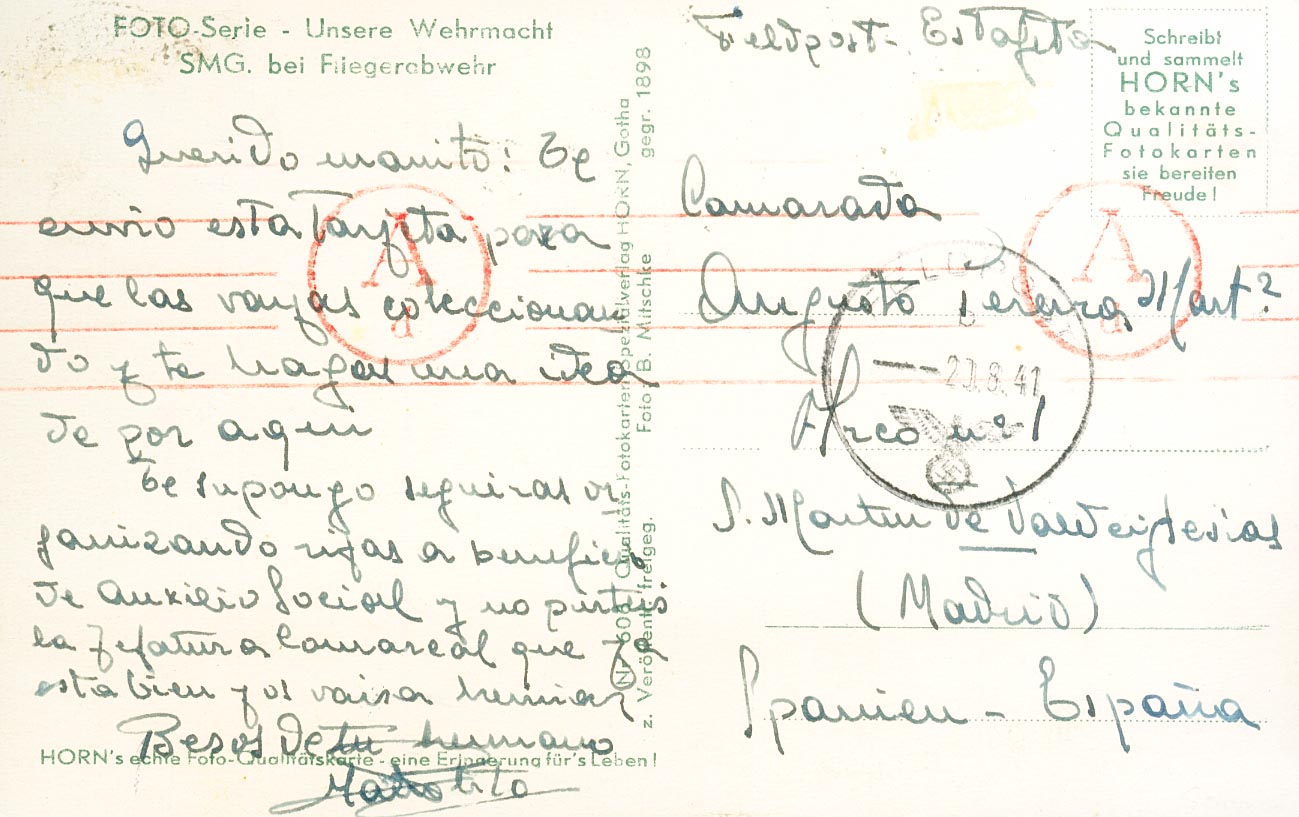 FOTO-Serie - Unsere Wehrmacht
SMG. bei Fliegerabwehr
Querido manito: Te
envio esta tarjeta para
que las vayas coleccionan
do y te hagas una idea
de por aqui
Te supongo seguiras or
ganizando rifas a beneficio
de Auxilio Social y no
la Jefatura Comarcal que ya
esta bien y os vais a
Besos de tu hermano
HORN's echte Foto-Qualitätskarte - eine Erinnerung für's Leben!
Nr. 606 Qualitäts-Fotokarten Spezialverlag HORN, Gotha
z. Veröffentl. freigeg. Foto: B. Mitschke gegr. 1898
Feldpost - Estafeta
Schreibt
und sammelt
HORN's
bekannte
Qualitäts-
Fotokarten
sie bereiten
Freude!
Camarada
Augusto Pereira Mart?
Arco nº 1
S. Martin de Valdeiglesias
(Madrid)
Spanien - España
A
A
FELDPOST
b
20.8.41